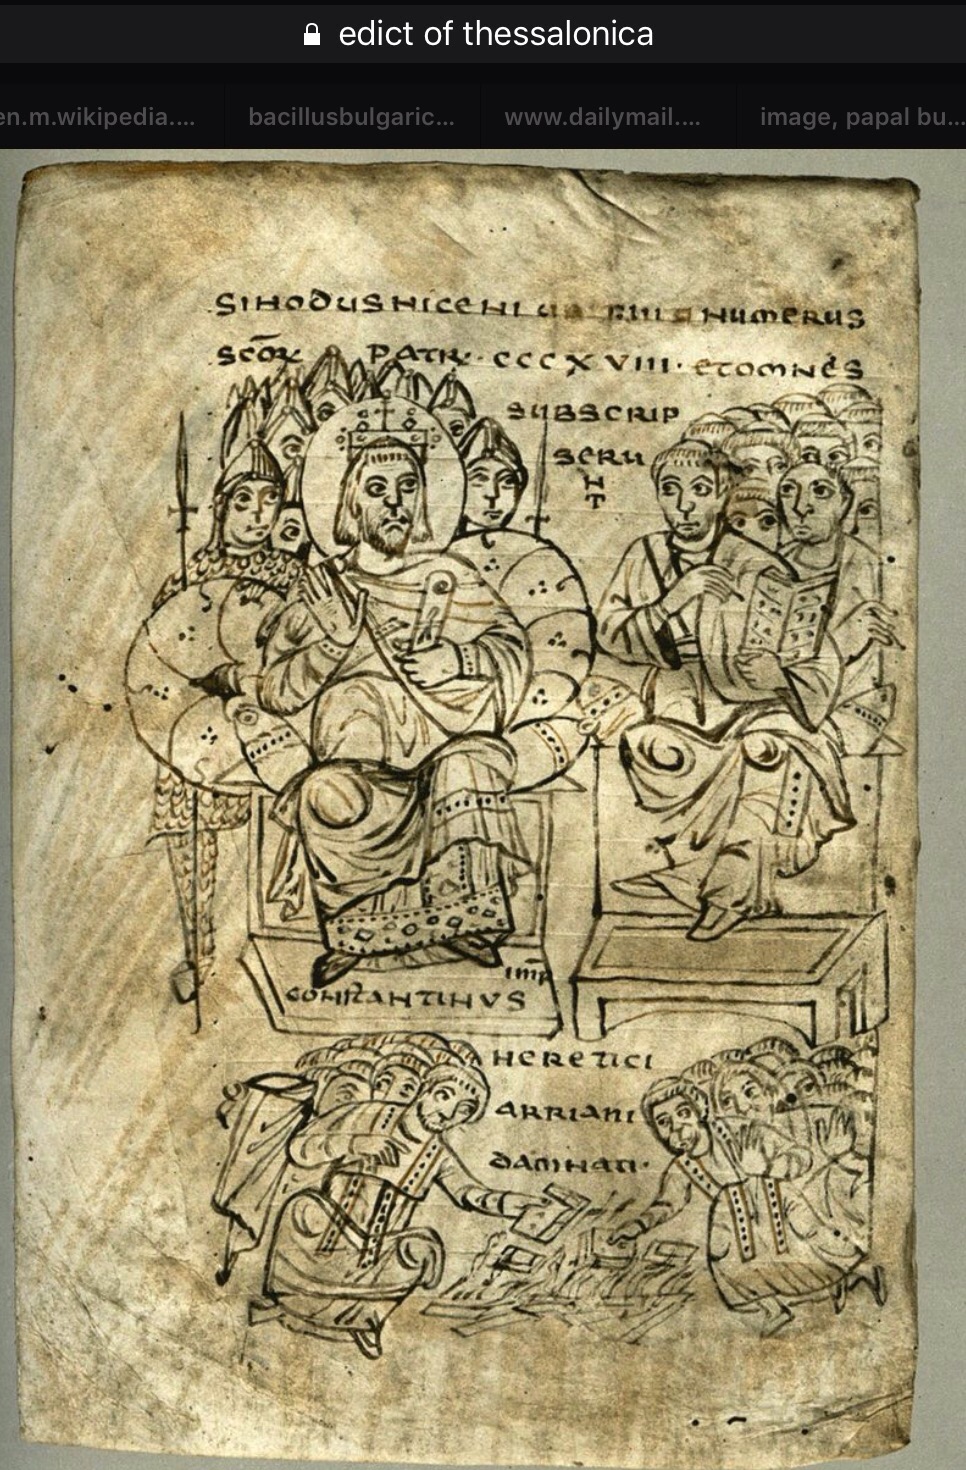 edict of thessalonica
en.m.wikipedia....
bacillusbulgaric...
www.dailymail....
image, papal bu...
SINODUS NICENI NUMERUS
SCŌR PATR· CCCXVIII· ET OMNES
SUBSCRIP
SERU
N
T
IMP
CONSTANTINUS
HERETICI
ARRIANI
DAMNATI·